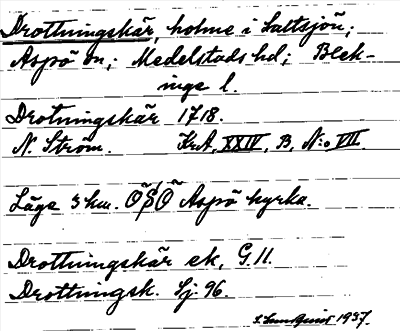 Drottningskär, holme i Saltsjön;
Aspö sn; Medelstads hd; Blek-
inge l.
Drotningskär 1718.
N. Ström. KrA, XXIV, B, N:o VII.
Läge 3 km. ÖSÖ Aspö kyrka.
Drottningskär ek, G.11.
Drottningsk. Sj. 96.
1937.